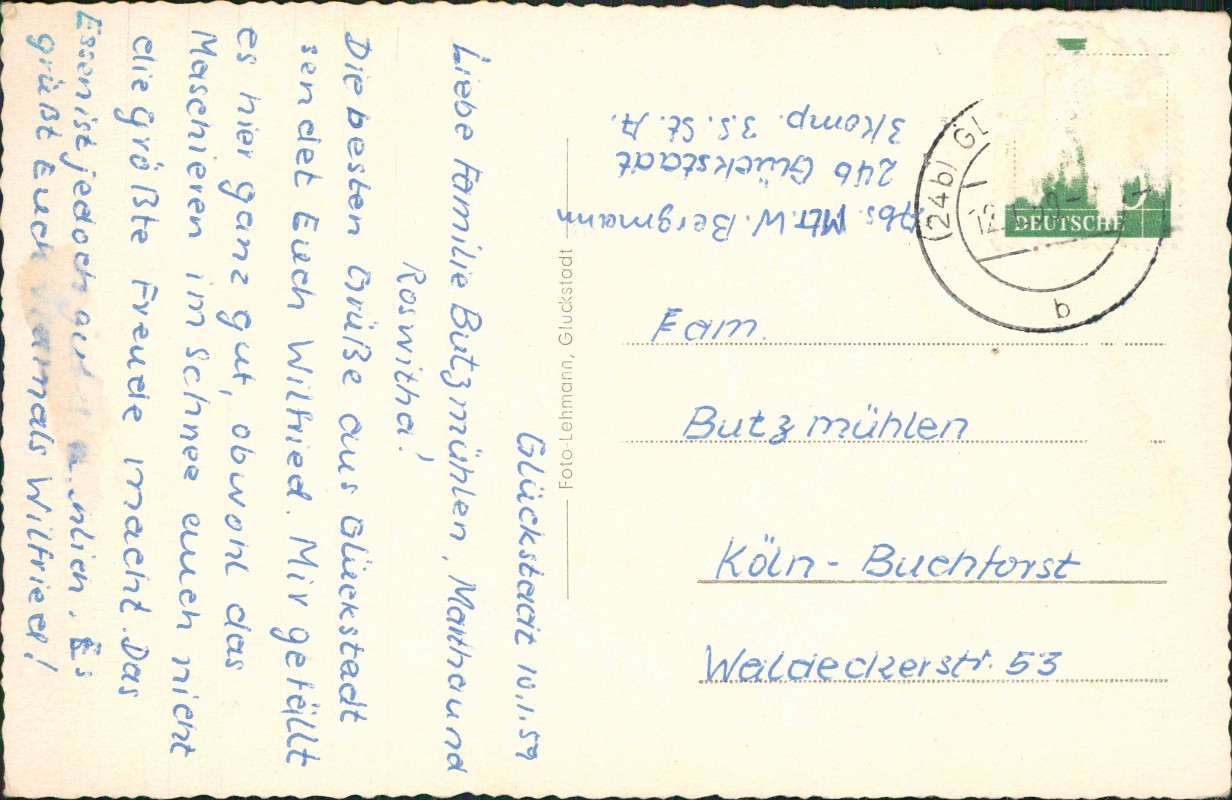 Glückstadt 10.1.59
Liebe Familie Butzmühlen, Martha und
Roswitha!
Die besten Grüße aus Glückstadt
sendet Euch Wilfried. Mir gefällt
es hier ganz gut, obwohl das
Maschieren im Schnee auch nicht
die größte Freude macht. Das
Essen ist jedoch gut Es
grüßt Euch Wilfried!
Foto-Lehmann, Glückstadt
Abs. Mtr. W. Bergmann
24b Glückstadt
3Komp. 3S. St. A.
DEUTSCHE
(24b) GL
12
b
Fam.
Butzmühlen
Köln - Buchforst
Waldeckerstr. 53